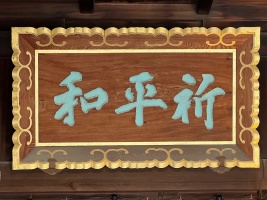 祈平和